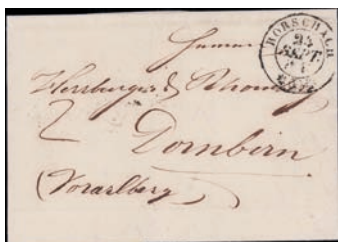 RORSCHACH
25
SEPT.
Herrburger & Rhomberg
2
Dornbirn
(Vorarlberg)